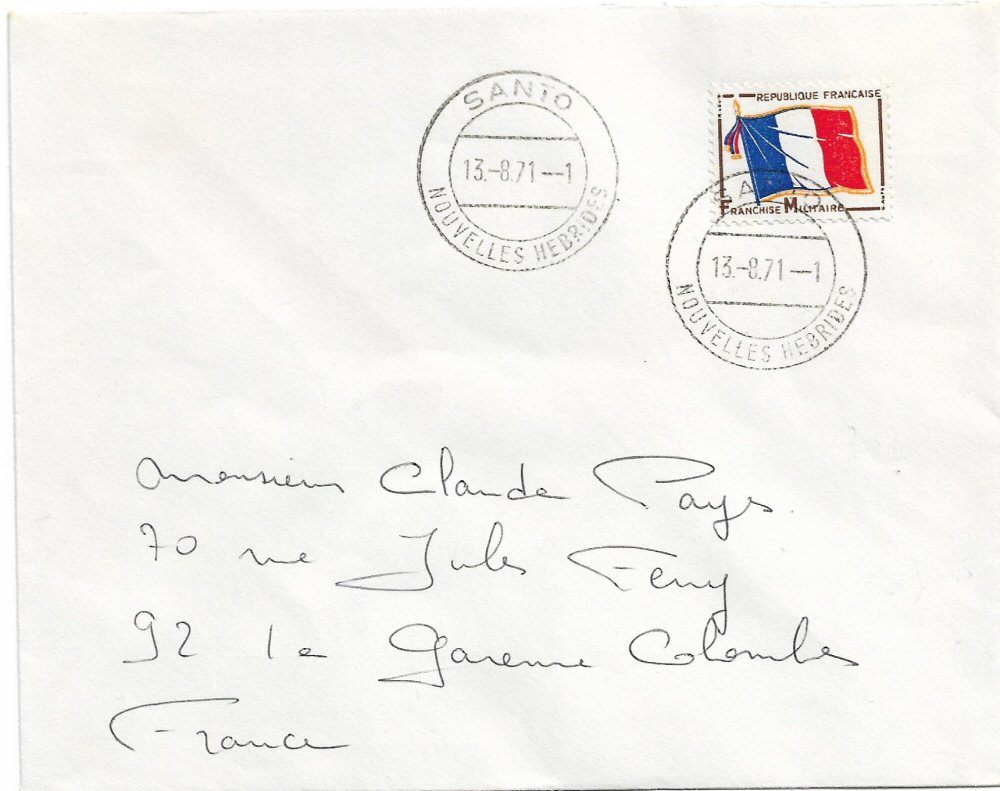 SANTO
13.-8.71--1
NOUVELLES HEBRIDES
REPUBLIQUE FRANCAISE
FRANCHISE MILITAIRE
SANTO
13.-8.71--1
NOUVELLES HEBRIDES
Monsieur Claude Payes
70 rue Jules Ferry
92 la Garenne Colombes
France